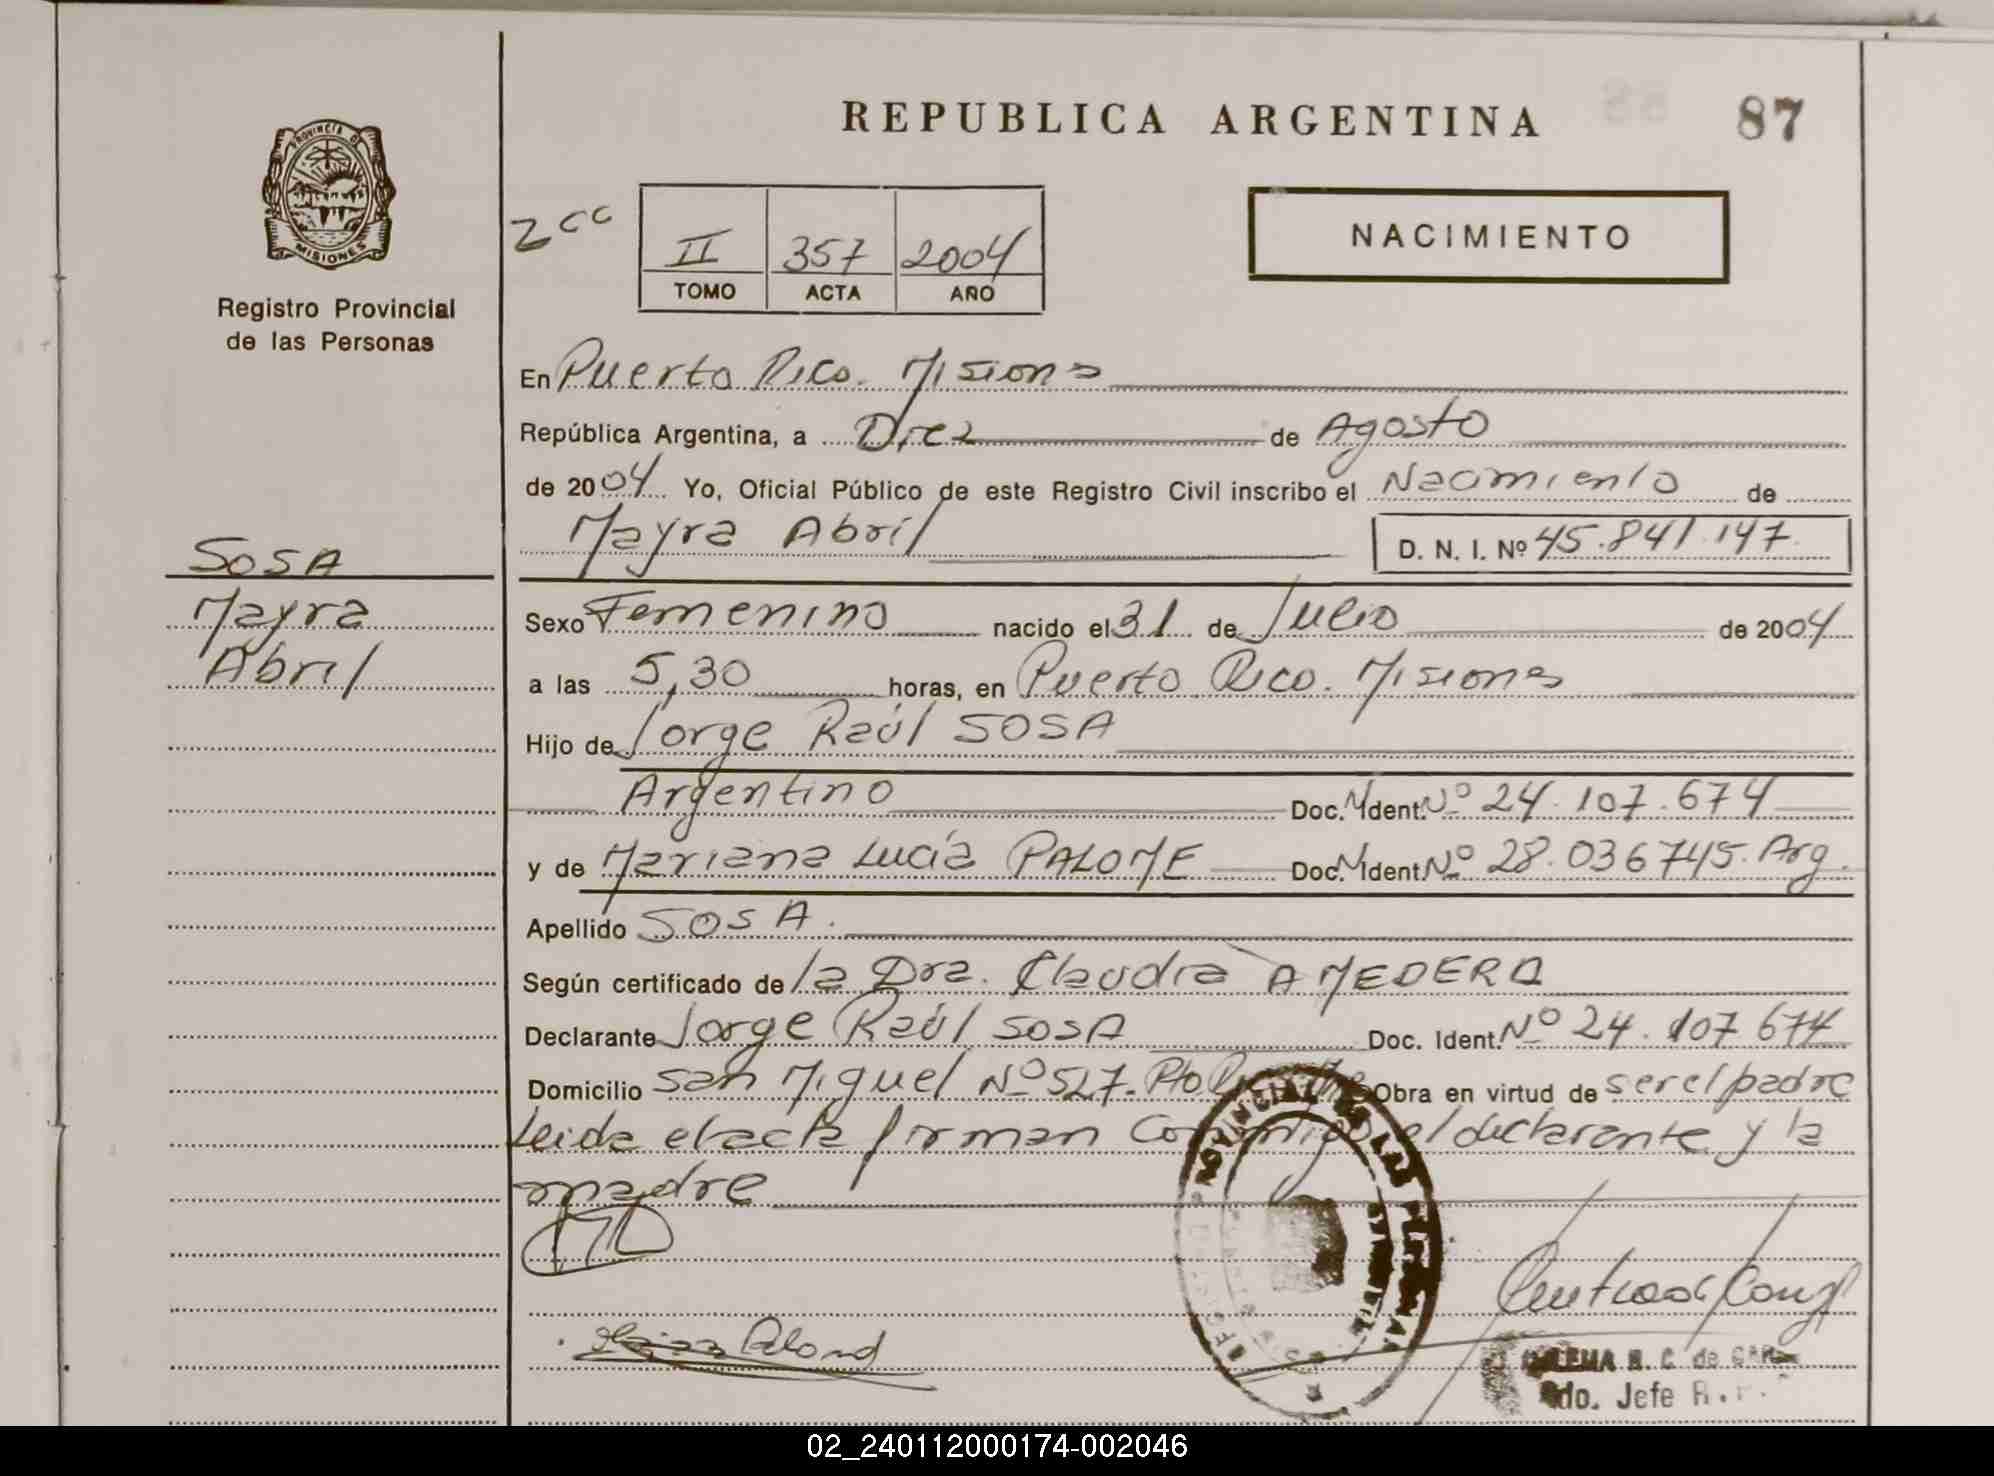 REPUBLICA ARGENTINA 87
PROVINCIA DE
MISIONES
Registro Provincial
de las Personas
2 cc
II 357 2004
TOMO ACTA AÑO
NACIMIENTO
En Puerto Rico. Misiones
República Argentina, a Diez de Agosto
de 2004 Yo, Oficial Público de este Registro Civil inscribo el Nacimiento de
Mayra Abril D. N. I. Nº 45.841.147
SOSA
Mayra
Abril
Sexo Femenino nacido el 31 de Julio de 2004
a las 5,30 horas, en Puerto Rico. Misiones
Hijo de Jorge Raúl SOSA
Argentino Doc. M Ident. Nº 24.107.674
y de Mariana Lucía PALOME Doc. M Ident Nº 28.036745. Arg.
Apellido SOSA.
Según certificado de la Dra. Claudia AMEDERO
Declarante Jorge Raúl SOSA Doc. Ident. Nº 24.107 674
Domicilio San Miguel Nº 527. Pto Obra en virtud de ser el padre
Leida el acta firman conmigo el declarante y la
madre
PROVINCIAL DE LAS PERSONAS
de
Jefe R.
02_240112000174-002046